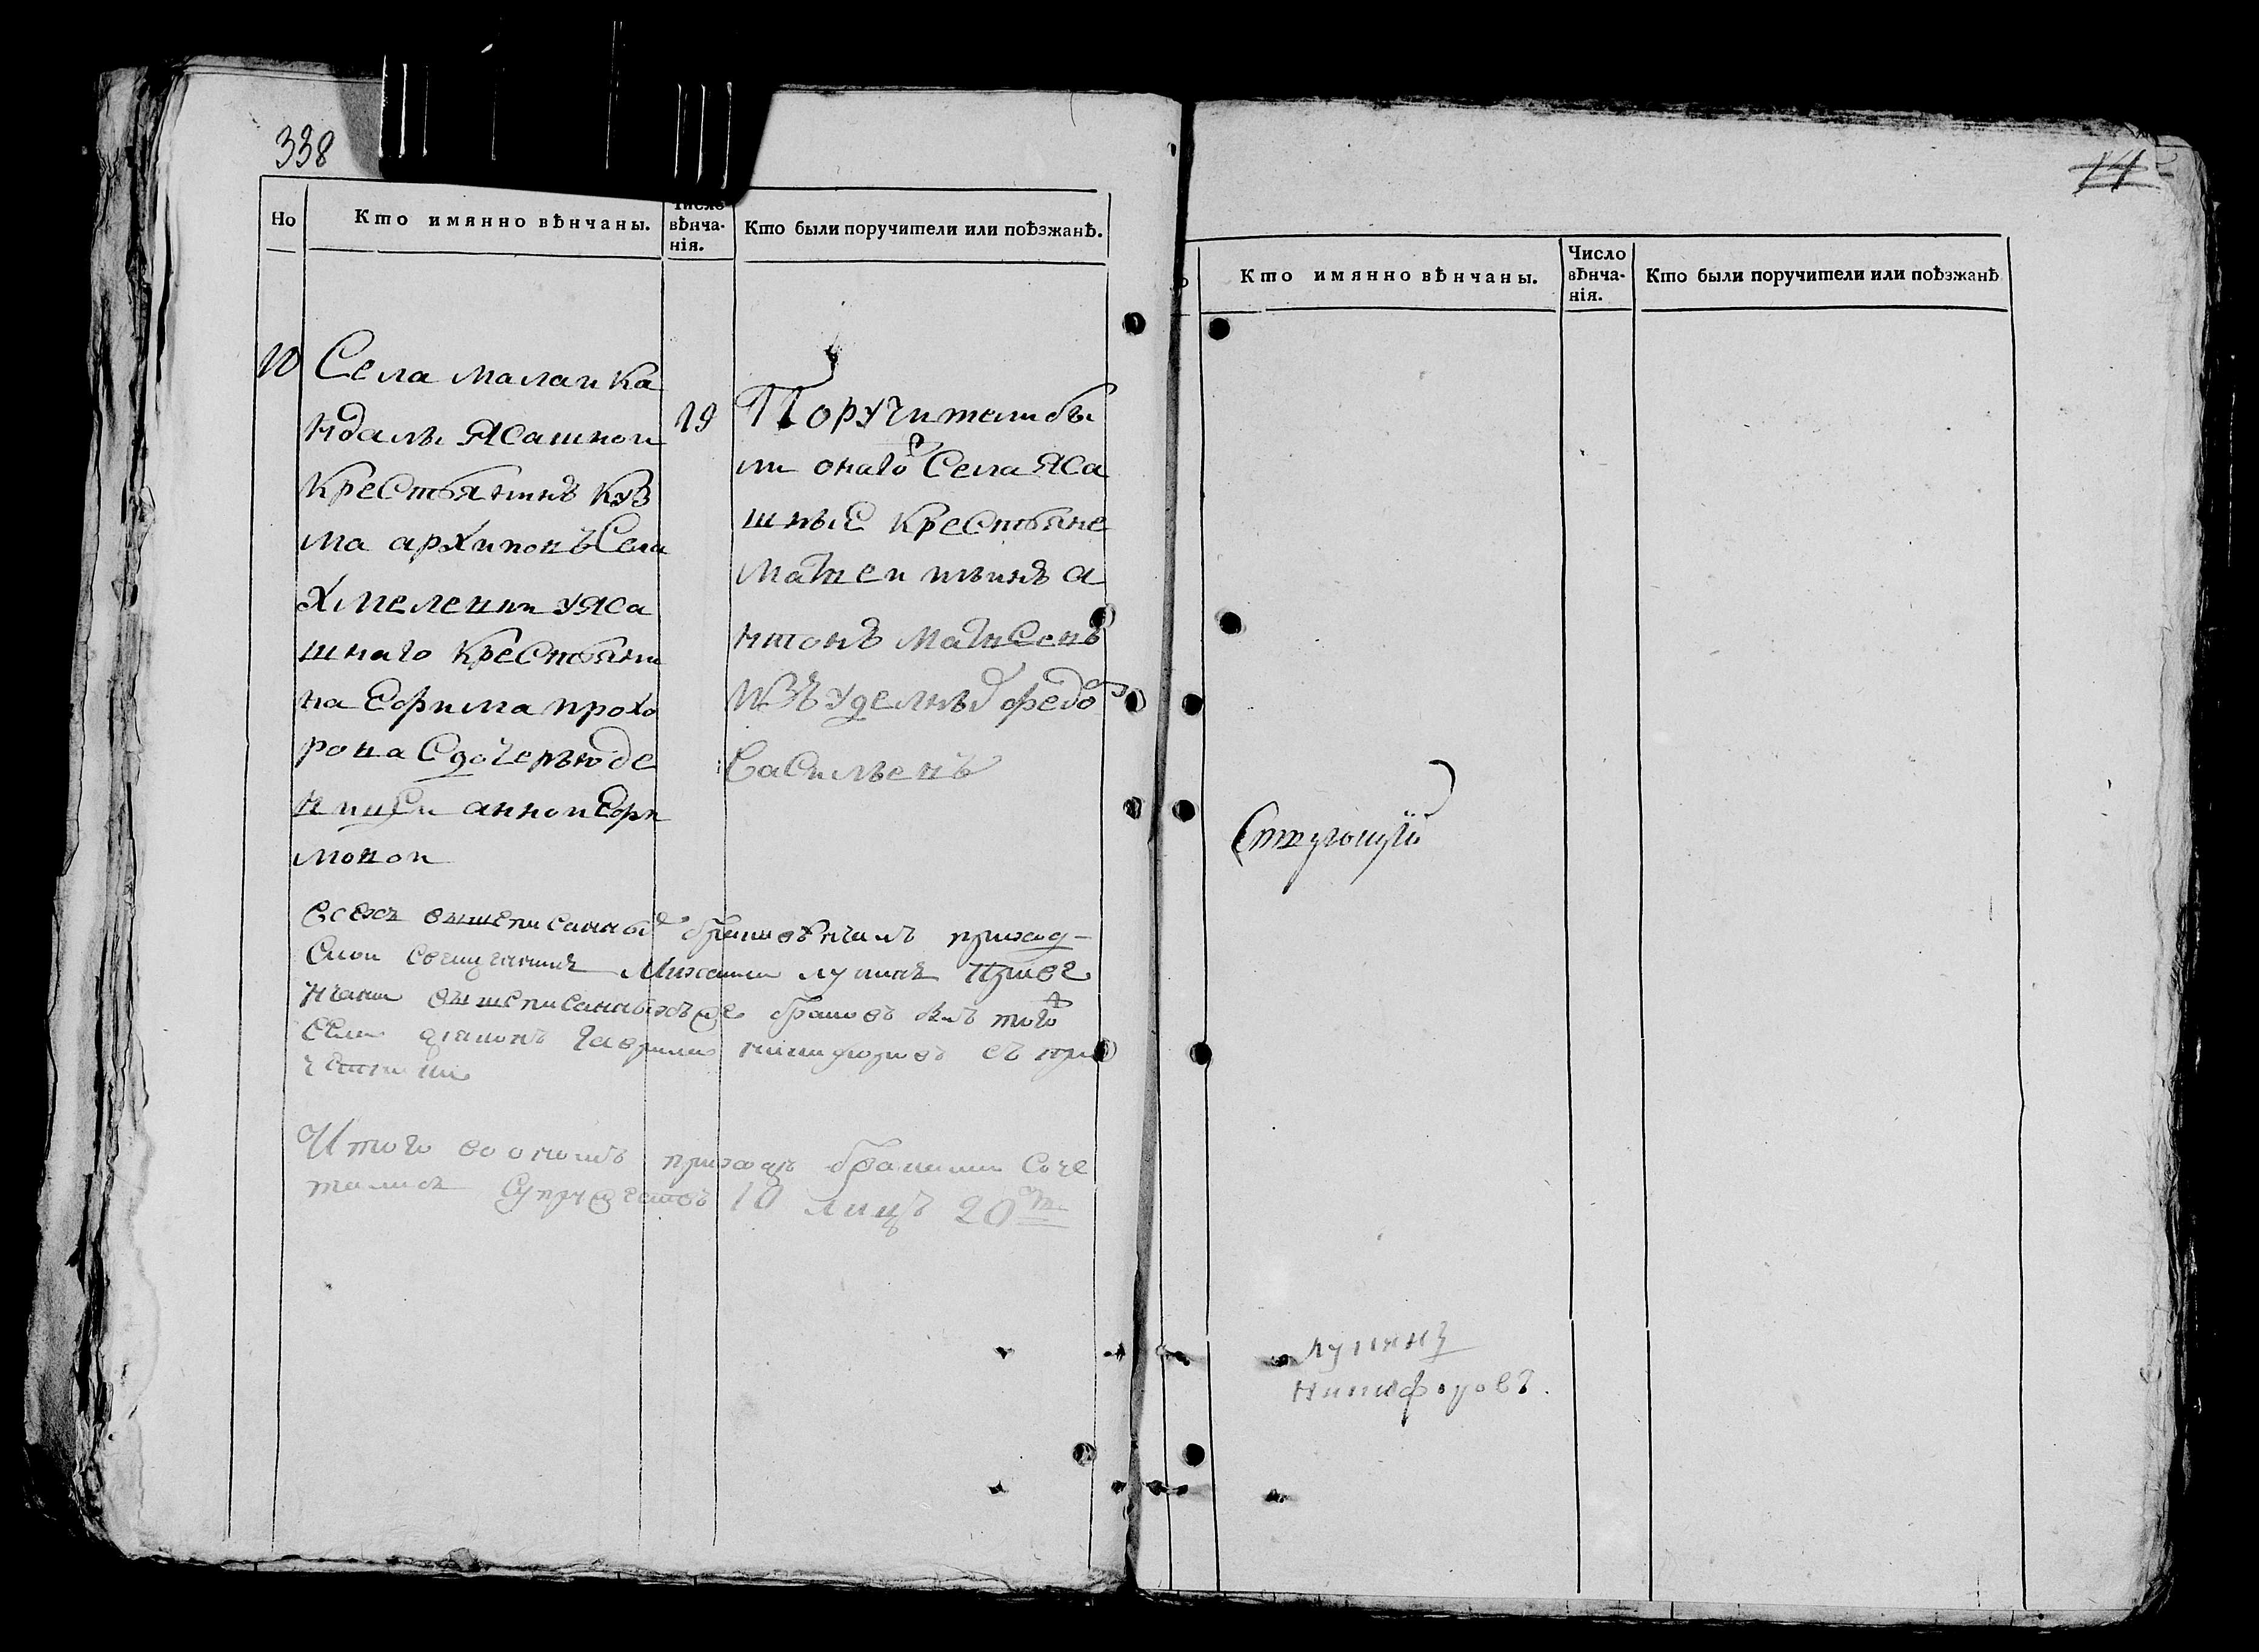 338
Но
Кто имянно вѣнчаны.
Число вѣнча-
нія.
Кто были поручители или поѣзжанѣ.
10
Села малаи ка
ндалы ясашнои
крестьянинъ куз
ма архиповъ Села
Хмелевки уяса
шнаго крестьяни
на Ефима прохо
рова Сдочерью де
вицеи анной Ефи
мовои
19
Поручители бы
ли онаго Села яса
шные крестьяне
Матвеи
нтонъ Матвеевъ
изъ удельных федо
Васильевъ
Всехъ вышеписанных браковенчалъ приход
Священникъ Михаила лупинъ привен
чании вышеписанныхъ браковъ былъ того
Села дьяконъ гаврила никифоровъ съ при
четники
Итого во ономъ приходе браками Соче
талися Супружествъ 10 лицъ 20ть
14
Кто имянно вѣнчаны.
Число
вѣнча-
нія.
Кто были поручители или поѣзжанѣ
лупинъ
никифоровъ.